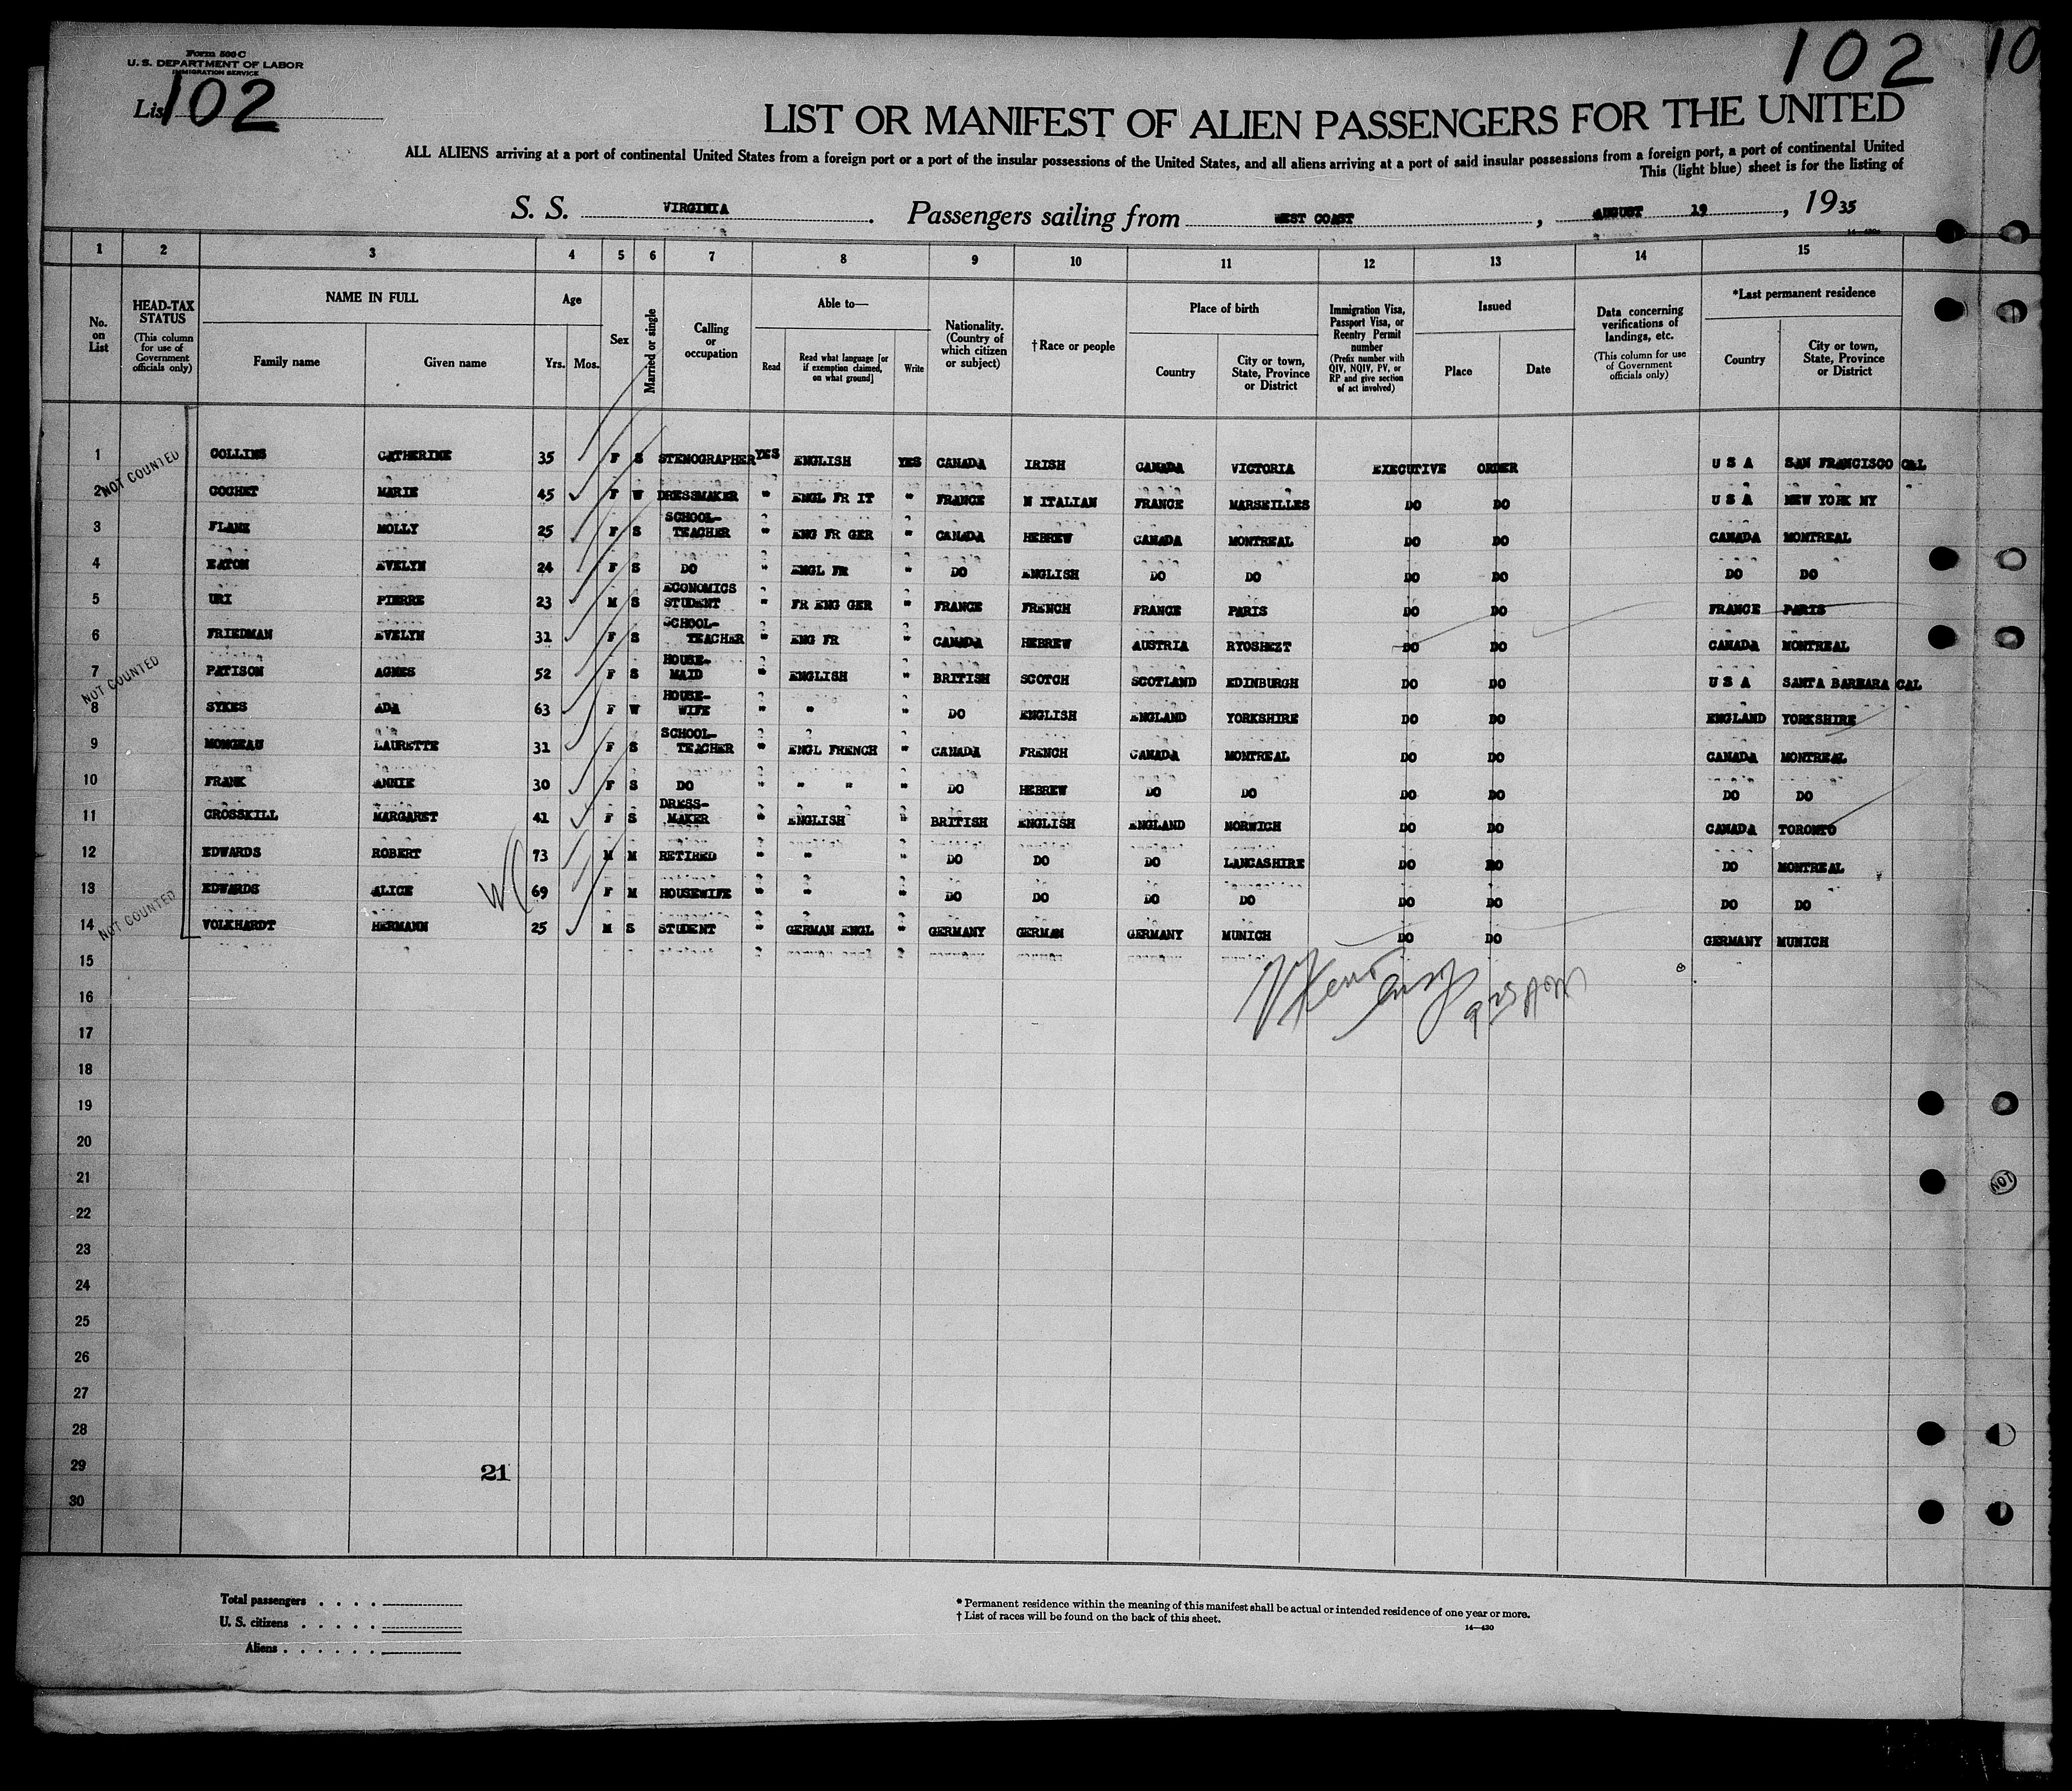 Form 500 C
U. S. DEPARTMENT OF LABOR
IMMIGRATION SERVICE
102 10
List 102
LIST OR MANIFEST OF ALIEN PASSENGERS FOR THE UNITED
ALL ALIENS arriving at a port of continental United States from a foreign port or a port of the insular possessions of the United States, and all aliens arriving at a port of said insular possessions from a foreign port, a port of continental United
This (light blue) sheet is for the listing of
S. S. VIRGINIA. Passengers sailing from WEST COAST, AUGUST 19, 1935
1 2 3 4 5 6 7 8 9 10 11 12 13 14 15
No. on List
HEAD-TAX STATUS (This column for use of Government officials only)
NAME IN FULL
Family name Given name
Age
Yrs. Mos.
Sex
Married or single
Calling or occupation
Able to—
Read Read what language [or if exemption claimed, on what ground] Write
Nationality. (Country of which citizen or subject)
†Race or people
Place of birth
Country City or town, State, Province or District
Immigration Visa, Passport Visa, or Reentry Permit number (Prefix number with QIV, NQIV, PV, or RP and give section of act involved)
Issued
Place Date
Data concerning verifications of landings, etc. (This column for use of Government officials only)
*Last permanent residence
Country City or town, State, Province or District
1 COLLINS CATHERINE 35 F S STENOGRAPHER YES ENGLISH YES CANADA IRISH CANADA VICTORIA EXECUTIVE ORDER U S A SAN FRANCISCO CAL
NOT COUNTED
2 COCHET MARIE 45 F W DRESSMAKER " ENGL FR IT " FRANCE N ITALIAN FRANCE MARSEILLES DO DO U S A NEW YORK NY
3 FLANZ MOLLY 25 F S SCHOOL-TEACHER " ENG FR GER " CANADA HEBREW CANADA MONTREAL DO DO CANADA MONTREAL
4 EATON EVELYN 24 F S DO " ENGL FR " DO ENGLISH DO DO DO DO DO DO
5 URI PIERRE 23 M S ECONOMICS STUDENT " FR ENG GER " FRANCE FRENCH FRANCE PARIS DO DO FRANCE PARIS
6 FRIEDMAN EVELYN 31 F S SCHOOL-TEACHER " ENG FR " CANADA HEBREW AUSTRIA RYOSHEZT DO DO CANADA MONTREAL
7 PATISON AGNES 52 F S HOUSE-MAID " ENGLISH " BRITISH SCOTCH SCOTLAND EDINBURGH DO DO U S A SANTA BARBARA CAL
NOT COUNTED
8 SYKES ADA 63 F W HOUSE-WIFE " " " DO ENGLISH ENGLAND YORKSHIRE DO DO ENGLAND YORKSHIRE
9 MONGEAU LAURETTE 31 F S SCHOOL-TEACHER " ENGL FRENCH " CANADA FRENCH CANADA MONTREAL DO DO CANADA MONTREAL
10 FRANK ANNIE 30 F S DO " " " " DO HEBREW DO DO DO DO DO DO
11 CROSSKILL MARGARET 41 F S DRESS-MAKER " ENGLISH " BRITISH ENGLISH ENGLAND NORWICH DO DO CANADA TORONTO
12 EDWARDS ROBERT 73 M M RETIRED " " " DO DO DO LANCASHIRE DO DO DO MONTREAL
13 EDWARDS ALICE 69 F M HOUSEWIFE " " " DO DO DO DO DO DO DO DO
NOT COUNTED
14 VOLKHARDT HERMANN 25 M S STUDENT " GERMAN ENGL " GERMANY GERMAN GERMANY MUNICH DO DO GERMANY MUNICH
15
16
17
18
19
20
21 NOT
22
23
24
25
26
27
28
29 21
30
Total passengers . . . .
U. S. citizens . . . . .
Aliens . . . . . .
* Permanent residence within the meaning of this manifest shall be actual or intended residence of one year or more.
† List of races will be found on the back of this sheet.
14—430